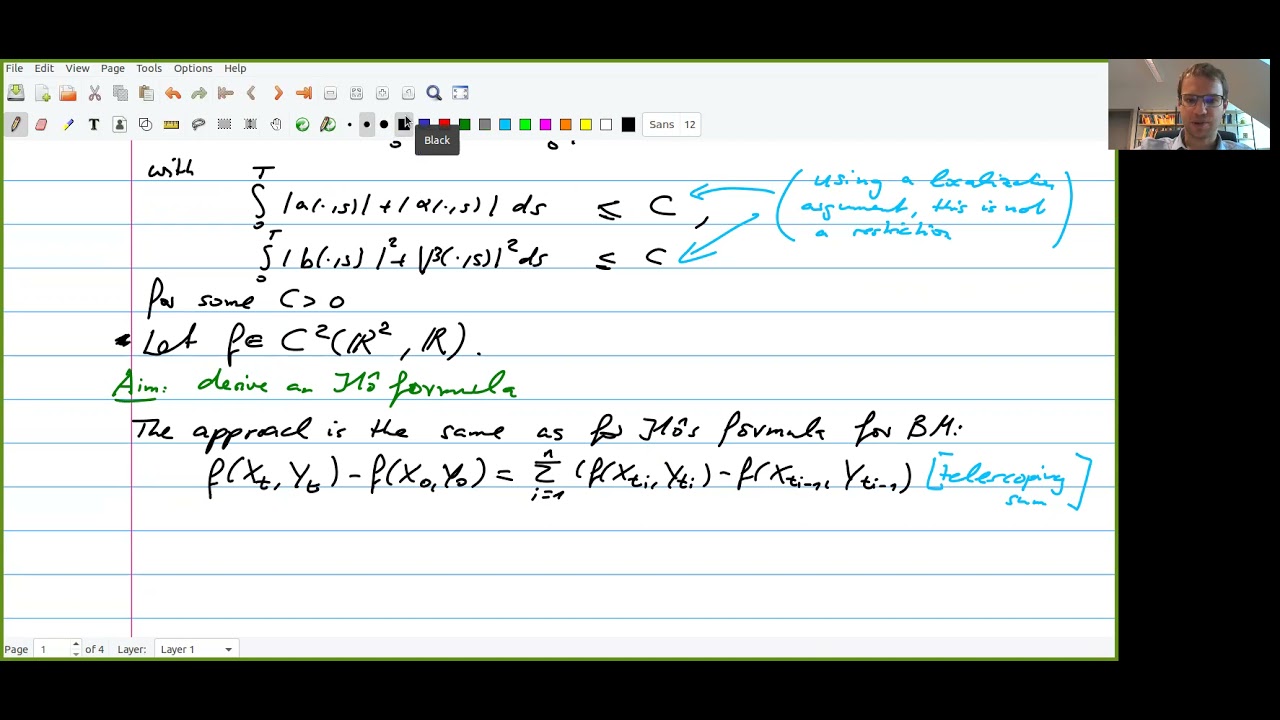 File Edit View Page Tools Options Help
Sans 12
Black
with
∫₀ᵀ |a(·,s)| + |α(·,s)| ds ≤ C,
(using a localization
argument, this is not
a restriction)
∫₀ᵀ |b(·,s)|² + |β(·,s)|² ds ≤ C
for some C > 0
• Let f ∈ C²(ℝ², ℝ).
Aim: derive an Itô formula
The approach is the same as for Itô's formula for BM:
f(X_t, Y_t) - f(X_0, Y_0) = Σ_{i=1}^n (f(X_{t_i}, Y_{t_i}) - f(X_{t_{i-1}}, Y_{t_{i-1}}) [telescoping
sum]
Page 1 of 4 Layer: Layer 1